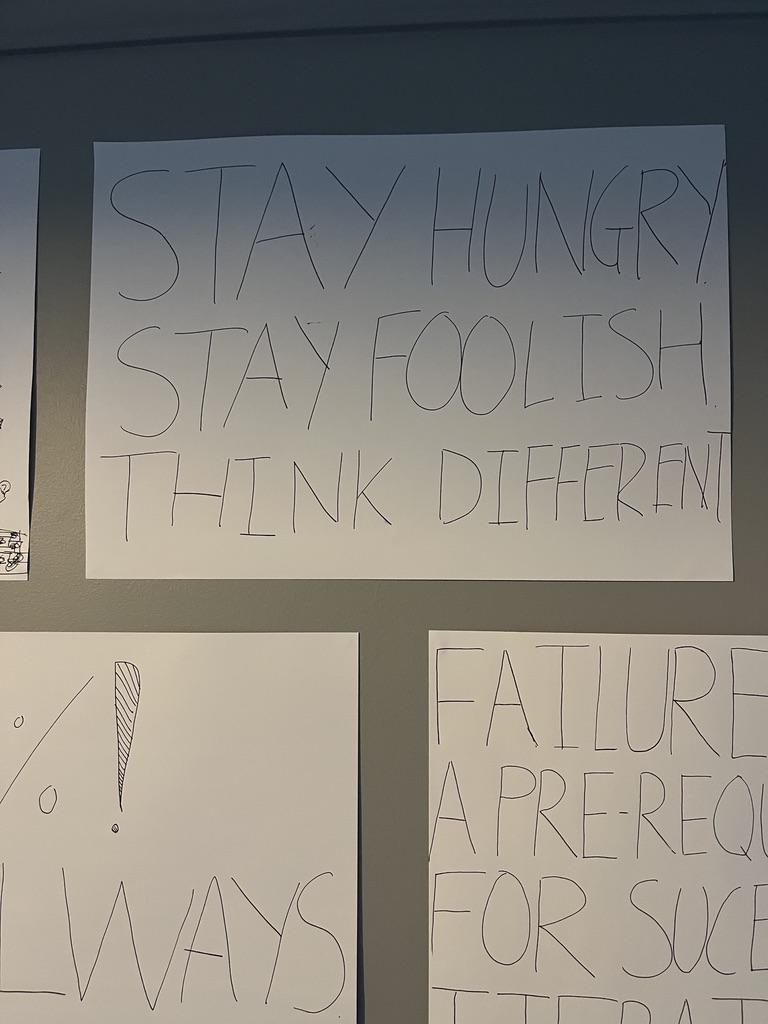 STAY HUNGRY.
STAY FOOLISH.
THINK DIFFERENT
%!
LWAYS
FAILURE
A PRE-REQU
FOR SUCE
ITERAT